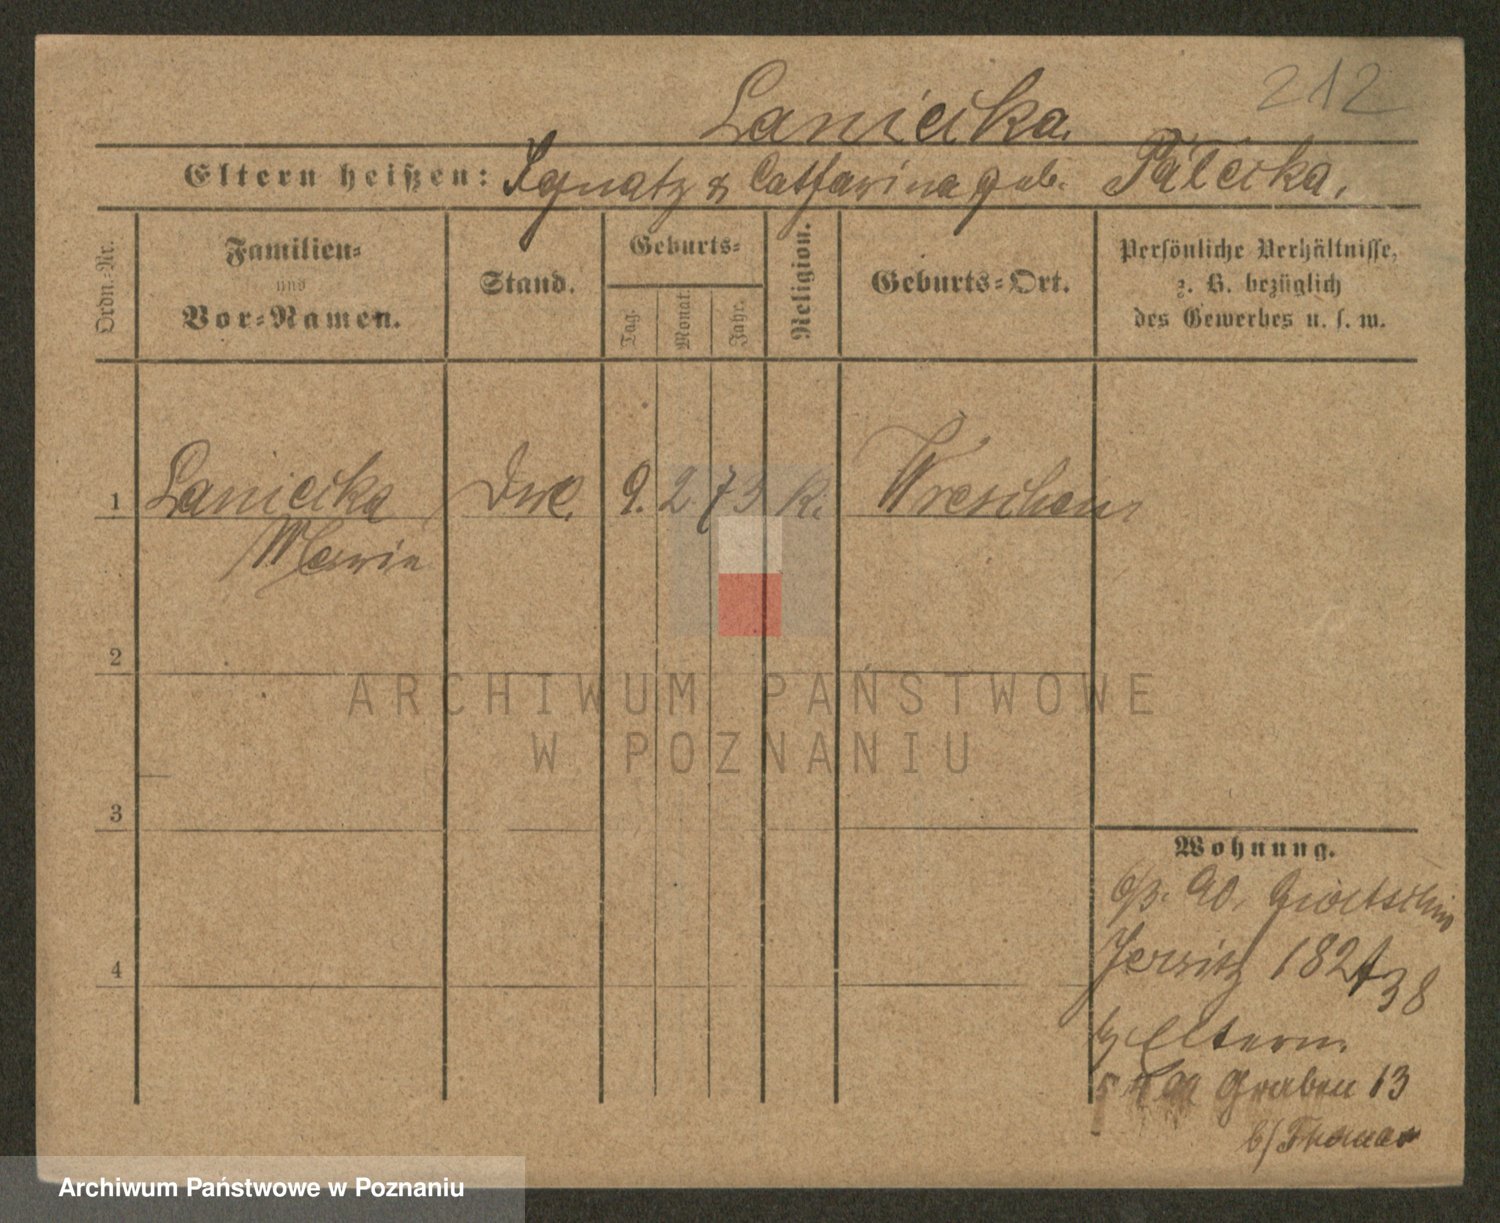 212
Laniecka.
Eltern heißen: Ignatz & Catharina geb. Palecka.
Ordn.-Nr.
Familien-
und
Vor-Namen.
Stand.
Geburts-
Tag.
Monat.
Jahr.
Religion.
Geburts-Ort.
Persönliche Verhältnisse,
z. B. bezüglich
des Gewerbes u. s. w.
1 Laniecka 9. 2. 73 k. Wreschen
Marie
2
ARCHIWUM PAŃSTWOWE
W POZNANIU
3
Wohnung.
90.
4
Jersitz 182
38
Eltern.
Graben 13
Archiwum Państwowe w Poznaniu